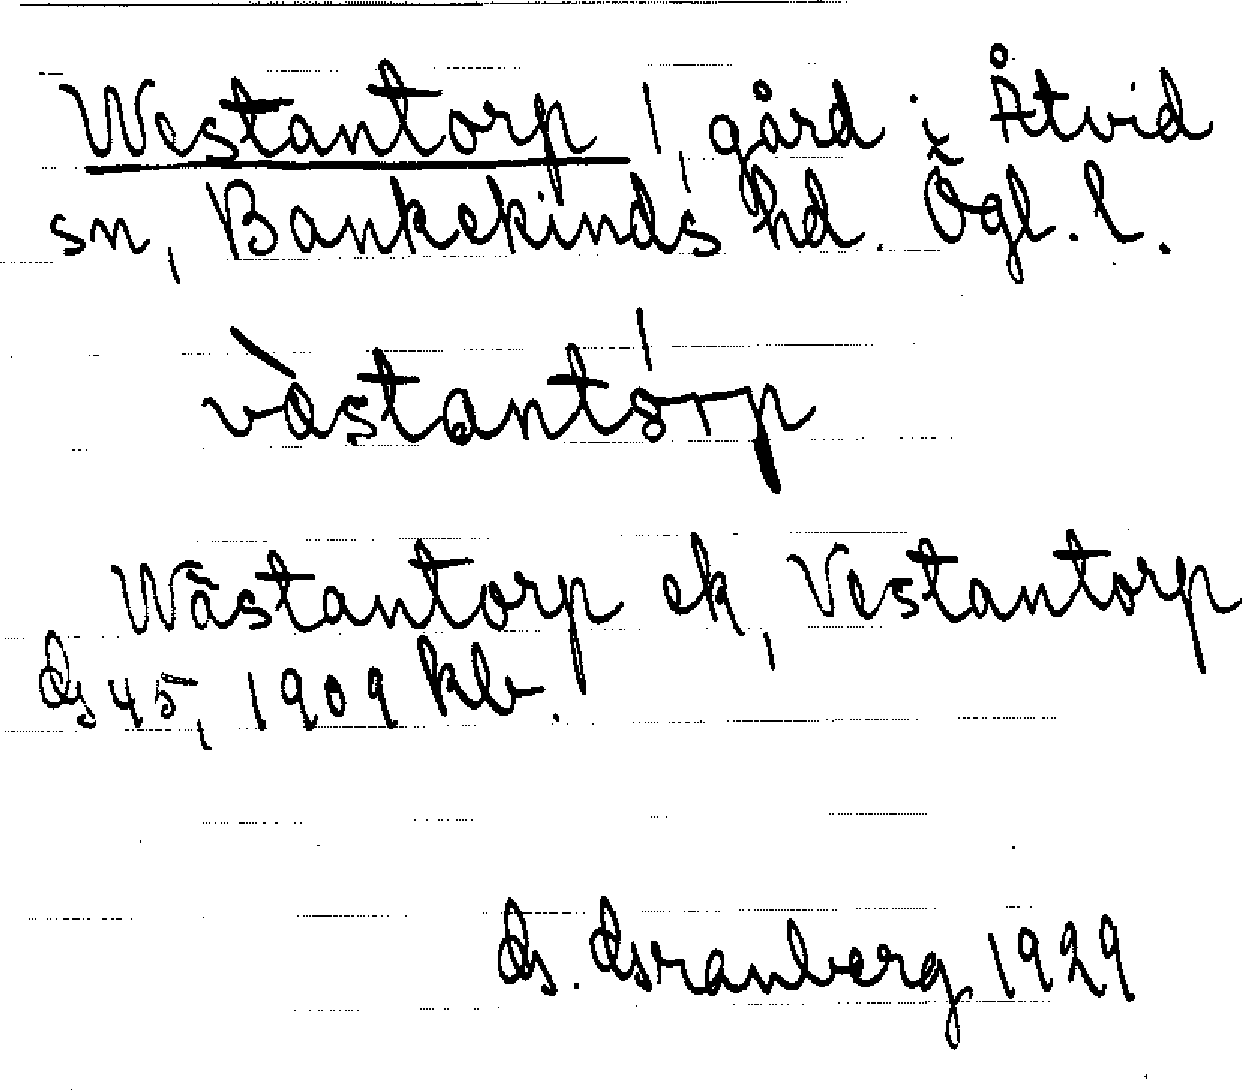 Westantorp, gård i Åtvid
sn, Bankekinds hd. Ögl. l.
vàstantórp
Wästantorp ek, Vestantorp
GS 45, 1909 kb.
G. Granberg 1929